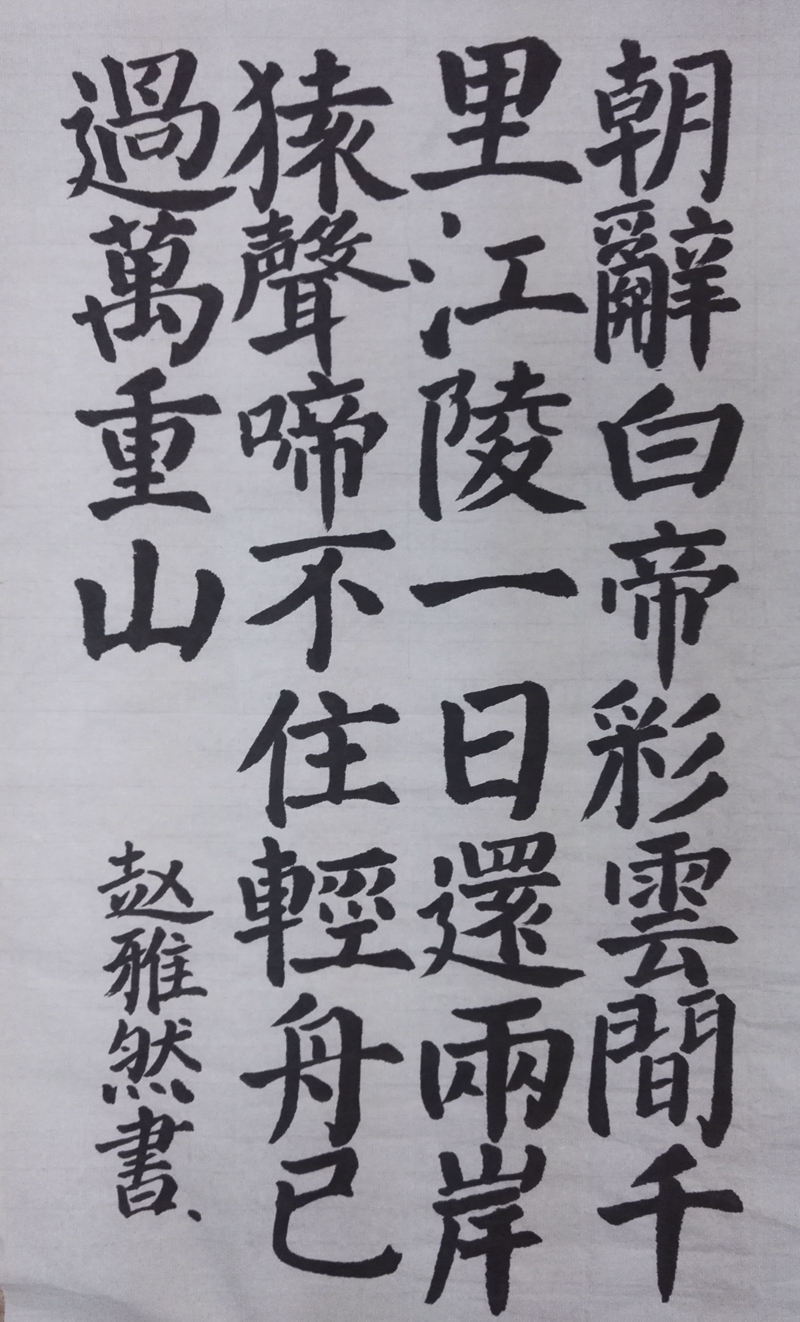 朝辭白帝彩雲間千
里江陵一日還兩岸
猿聲啼不住輕舟已
過萬重山
赵雅然書、